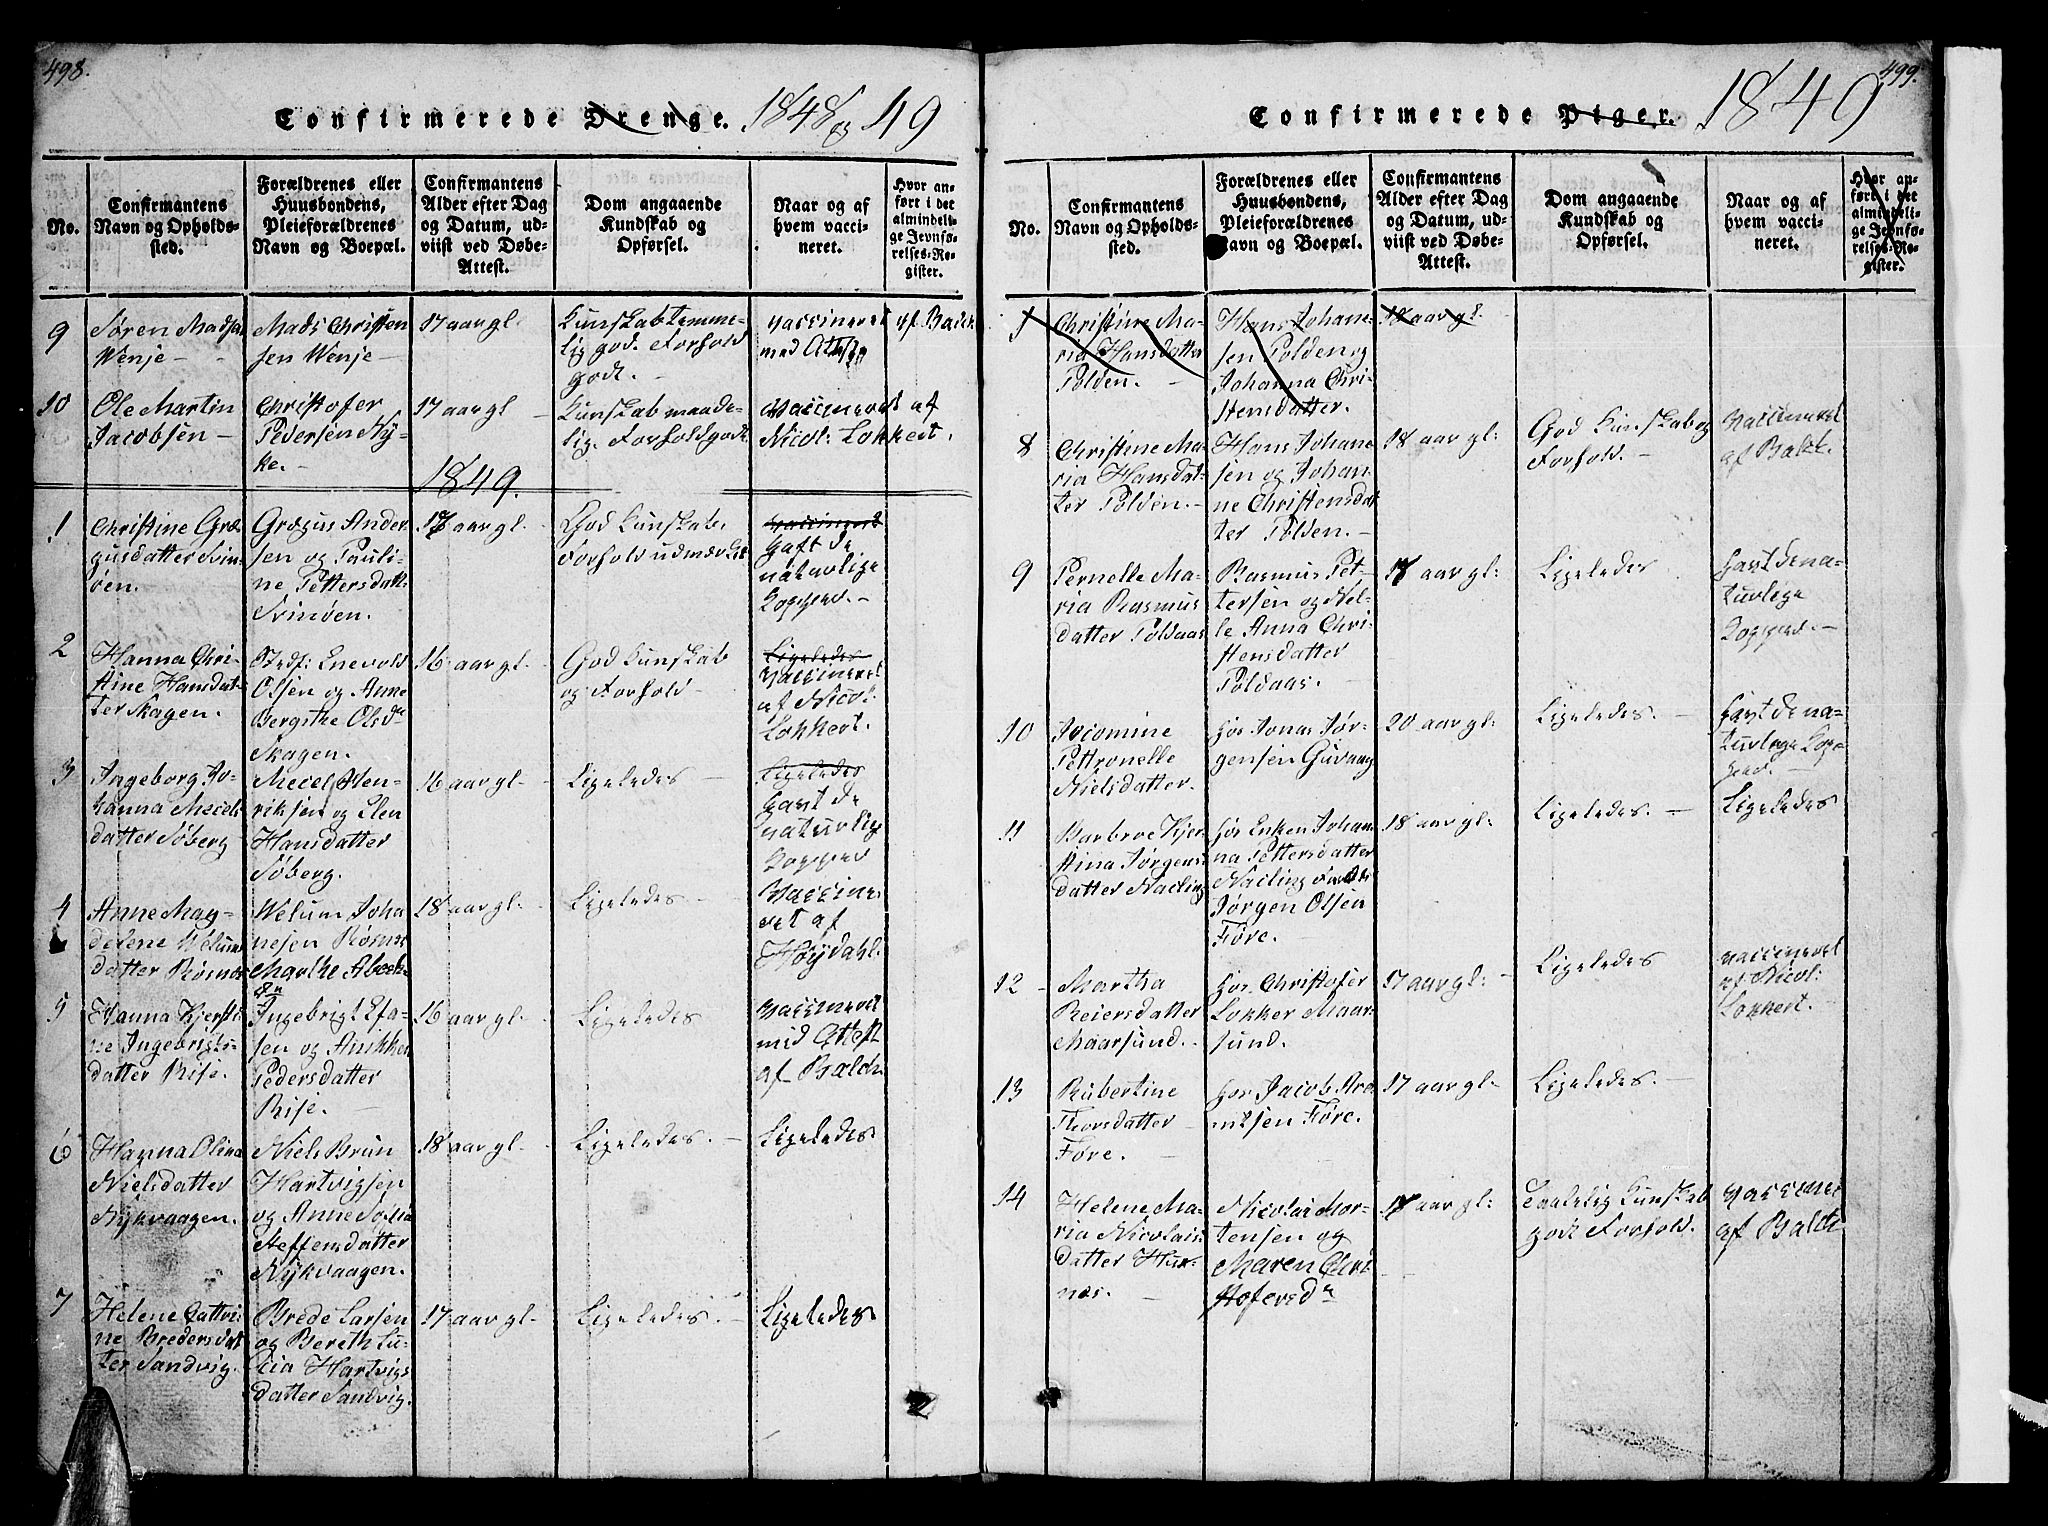 498.
Confirmerede Drenge. 1848 og 49
No.
Confirmantens
Navn og Opholds-
sted.
Forældrenes eller
Huusbondens,
Pleieforældrenes
Navn og Boepæl.
Confirmantens
Alder efter Dag
og Datum, ud-
viist ved Døbe-
Attest.
Dom angaaende
Kundskab og
Opførsel.
Naar og af
hvem vacci-
neret.
Hvor an-
ført i det
almindeli-
ge Jevnfø-
relses-Re-
gister.
9
Søren Madsen
Wenje -
Mads Christen
sen Wenje -
17 aar gl.
Kunskab temme-
lig god. Forhold
godt. -
Vaccineret
med Attest
af Balch
10
Ole Martin
Jacobsen -
Christofer
Pedersen Ny-
ke. -
17 aar gl -
Kunskab maade-
lig. Forhold godt.
Vaccineret af
Nicol: Lokkert.
1849.
1
Christine Græ
gusdatter Svin
øen.
Grægus Ander
sen og Pauli-
ne Pettersdatt.
Svinøen.
17 aar gl.
God Kunskab.
Forhold udmærket
Vaccineret
Haft de
naturlige
Kopper. -
2
Hanna Chri-
stine Hansdat-
ter Skagen.
Stedf: Enevold
Olsen og Anne
Bergithe Olsdr
Skagen.
16 aar gl.
God Kunskab
og Forhold -
Ligeledes
Vaccineret
af Nicol:
Lokkert.
3
Ingeborg Jo-
hanna Mecels
datter Søberg
Mecel Hen-
riksen og Elen
Hansdatter
Søberg.
16 aar gl. -
Ligeledes -
Ligeledes
Havt de
naturlige
Kopper
4
Anne Mag-
delene Welums
datter Røsnes
Welum Joha
nesen Røsnes
Marthe Abels-
dr
18 aar gl. -
Ligeledes -
Vaccine-
ret af
Høydahl.
5
Hanna Kjersti-
ne Ingebrigts-
datter Rise.
Ingebrigt Esa-
sen og Anikken
Pedersdatter
Rise. -
16 aar gl -
Ligeledes
Vaccineret
mid Attest
af Balch.
6
Hanna Olina
Nielsdatter
Nykvaagen.
Niels Brun
Hartvigsen
og Anne Sofia
Steffensdatter
Nykvaagen.
18 aar gl. -
Ligeledes. -
Ligeledes
7
Helene Cattri-
ne Bredersdat
ter Sandvig.
Brede Larsen
og Bereth Lu-
cia Hartvigs
datter Sandvig.
17 aar gl. -
Ligeledes. -
Ligeledes
499.
Confirmerede Piger. 1849
No.
Confirmantens
Navn og Opholds-
sted.
Forældrenes eller
Huusbondens,
Pleieforældrenes
Navn og Boepæl.
Confirmantens
Alder efter Dag
og Datum, ud-
viist ved Døbe-
Attest.
Dom angaaende
Kundskab og
Opførsel.
Naar og af
hvem vacci-
neret.
Hvor an-
ført i det
almindeli-
ge Jevnfø-
relses-Re-
gister.
Christine Ma-
ria Hansdatter
Polden. -
Hans Johane-
sen Polden og
Johanna Chri-
stensdatter.
18 aar gl.
8
Christine Ma-
ria Hansdat-
ter Polden. -
Hans Johane
sen og Johan-
ne Christensdat
ter Polden. -
18 aar gl:
God Kunskab og
Forhold. -
Vaccineret
af Balch.
9
Pernelle Ma-
ria Rasmus
datter Poldaas
Rasmus Pet-
tersen og Nel-
le Anna Chri-
stensdatter
Poldaas. -
17 aar gl:
Ligeledes
Havt de na-
turlige
Kopper. -
10
Jocomine
Pettronelle
Nielsdatter.
hos Jonas Jør-
gensen Guvaag
20 aar gl:
Ligeledes. -
Havt de na-
turlige Kop-
per. -
11
Barbroe Kjer
stina Jørgens
datter Nacling
hos Enken Johan
na Pettersdatter
Nacling
Jørgen Olsen
Føre.
18 aar gl:
Ligeledes. -
Ligeledes
12 -
Martha
Reiersdatter
Maarsund. -
hos Christofer
Lokker Maar-
sund.
17 aar gl: -
Ligeledes
Vaccineret
af Nicol:
Lokkert.
13
Rubertine
Thorsdatter
Føre.
hos Jacob Aro
ntsen Føre.
17 aar gl. -
Ligeledes. -
14
Helene Ma-
ria Nicolais
datter Hus-
nes. -
Nicolai Mor-
tensen og
Maren Chri
stofersdr
17 aar gl:
Taalelig Kunskab
godt Forhold.
Vaccine
af Balch